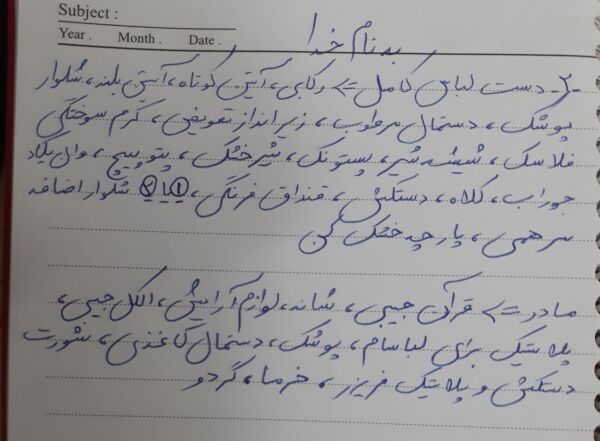 Subject :
Year . Month . Date .
به نام خدا
۲- دست لباس کامل => رکابی، آستین کوتاه، آستین بلند، شلوار
پوشک، دستمال مرطوب، زیرانداز تعویض، کرم سوختگی
فلاسک، شیشه شیر، پستونک، شیرخشک، پتو پیچ، وان یکاد
جوراب، کلاه، دستکش، قنداق فرنگی، ۱ یا ۲ شلوار اضافه
سرهمی، پارچه خشک کن
مادر => قرآن جیبی، شانه، لوازم آرایش، الکل جیبی،
پلاستیک برای لباسام، پوشک، دستمال کاغذی، شورت
دستکش و پلاستیک فریزر، خرما، گردو